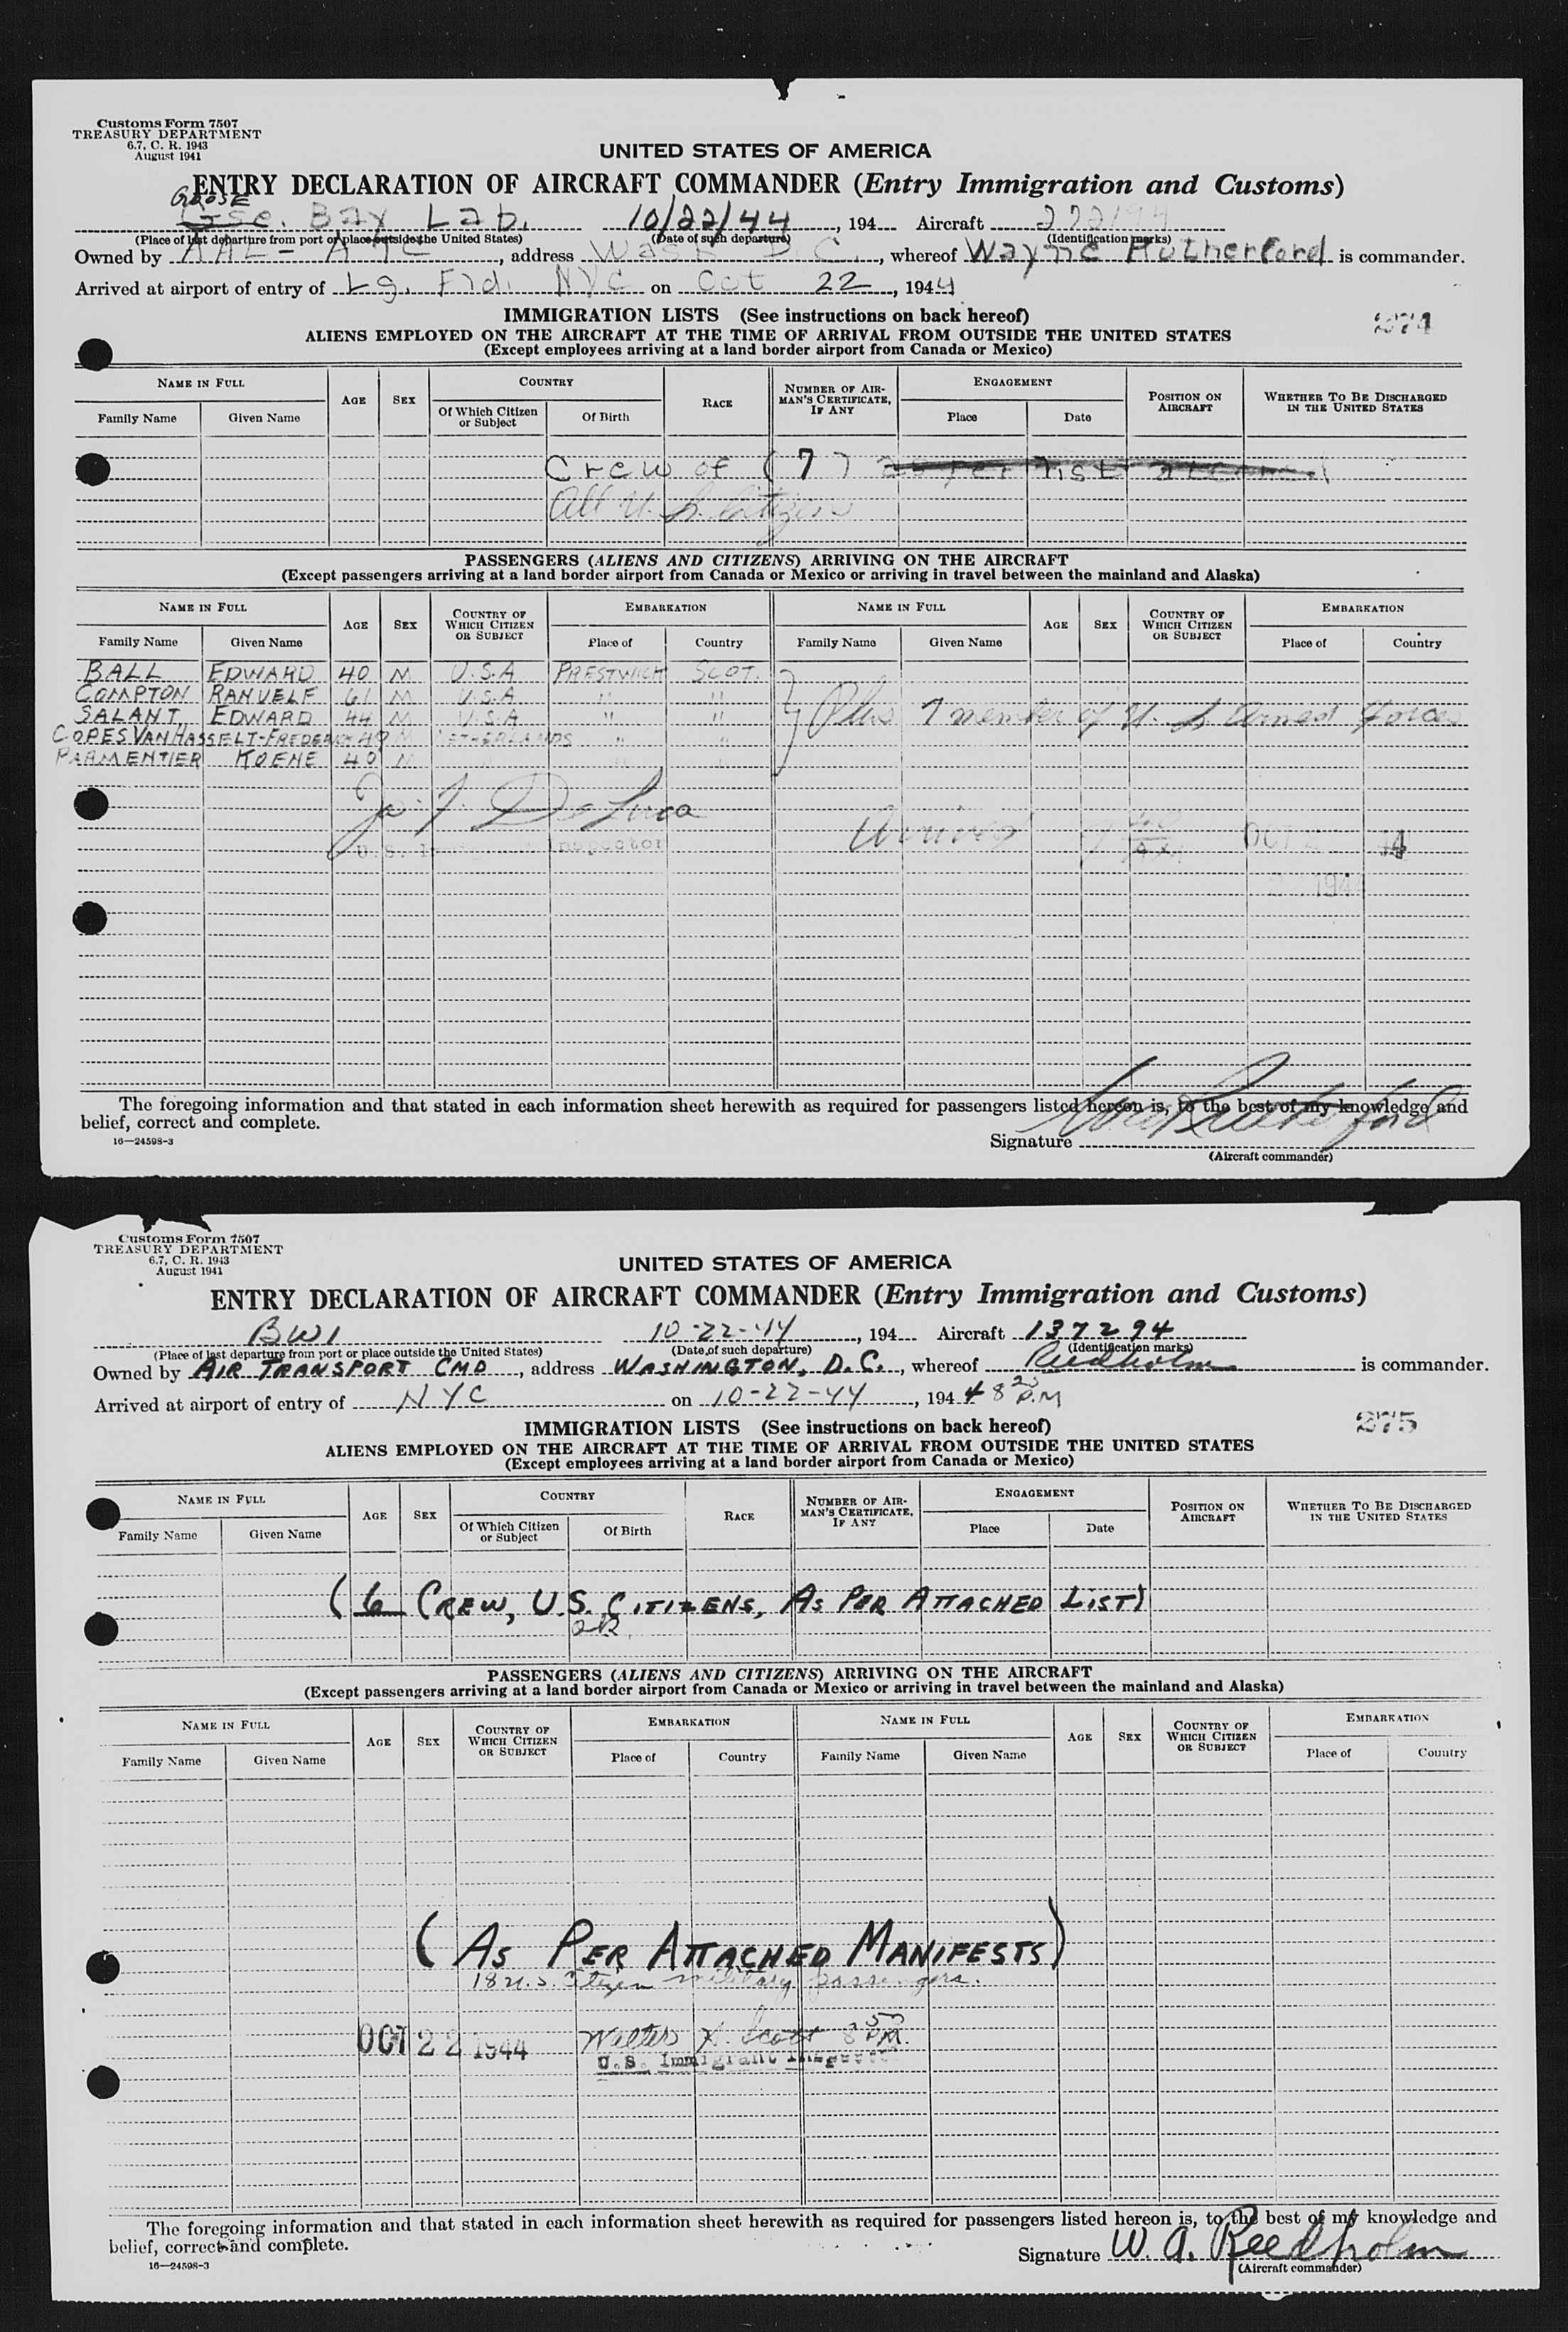 Customs Form 7507
TREASURY DEPARTMENT
6.7, C. R. 1943
August 1941
UNITED STATES OF AMERICA
ENTRY DECLARATION OF AIRCRAFT COMMANDER (Entry Immigration and Customs)
GOOSE
Gse. Bay Lab. 10/22/44, 194 Aircraft 272194
(Place of last departure from port or place outside the United States) (Date of such departure) (Identification marks)
Owned by AAL - ATC, address Wash D.C., whereof Wayne Rutherford is commander.
Arrived at airport of entry of Lg. Fld. NYC on Oct 22, 1944
IMMIGRATION LISTS (See instructions on back hereof) 274
ALIENS EMPLOYED ON THE AIRCRAFT AT THE TIME OF ARRIVAL FROM OUTSIDE THE UNITED STATES
(Except employees arriving at a land border airport from Canada or Mexico)
NAME IN FULL AGE SEX COUNTRY RACE NUMBER OF AIRMAN'S CERTIFICATE, IF ANY ENGAGEMENT POSITION ON AIRCRAFT WHETHER TO BE DISCHARGED IN THE UNITED STATES
Family Name Given Name Of Which Citizen or Subject Of Birth Place Date
Crew of (7) as per list attached
All U. S. Citizens
PASSENGERS (ALIENS AND CITIZENS) ARRIVING ON THE AIRCRAFT
(Except passengers arriving at a land border airport from Canada or Mexico or arriving in travel between the mainland and Alaska)
NAME IN FULL AGE SEX COUNTRY OF WHICH CITIZEN OR SUBJECT EMBARKATION NAME IN FULL AGE SEX COUNTRY OF WHICH CITIZEN OR SUBJECT EMBARKATION
Family Name Given Name Place of Country Family Name Given Name Place of Country
BALL EDWARD 40 M U.S.A PRESTWICH SCOT.
COMPTON RANUELF 61 M U.S.A " "
SALANT, EDWARD 44 M U.S.A " " Plus 7 member of U. S. Armed Forces
COPES VAN HASSELT-FREDERICK 49 M NETHERLANDS " "
PARMENTIER KOENE 40 M " "
Jo. J. DeLuca
U.S. Inspector
Arrived OCT 44
1944
The foregoing information and that stated in each information sheet herewith as required for passengers listed hereon is, to the best of my knowledge and
belief, correct and complete.
16—24598-3
Signature Rutherford
(Aircraft commander)
Customs Form 7507
TREASURY DEPARTMENT
6.7, C. R. 1943
August 1941
UNITED STATES OF AMERICA
ENTRY DECLARATION OF AIRCRAFT COMMANDER (Entry Immigration and Customs)
BWI 10-22-44, 194 Aircraft 137294
(Place of last departure from port or place outside the United States) (Date of such departure) (Identification marks)
Owned by AIR TRANSPORT CMD, address WASHINGTON, D.C., whereof Reedholm is commander.
Arrived at airport of entry of NYC on 10-22-44, 1944 8 20 P.M
IMMIGRATION LISTS (See instructions on back hereof) 275
ALIENS EMPLOYED ON THE AIRCRAFT AT THE TIME OF ARRIVAL FROM OUTSIDE THE UNITED STATES
(Except employees arriving at a land border airport from Canada or Mexico)
NAME IN FULL AGE SEX COUNTRY RACE NUMBER OF AIRMAN'S CERTIFICATE, IF ANY ENGAGEMENT POSITION ON AIRCRAFT WHETHER TO BE DISCHARGED IN THE UNITED STATES
Family Name Given Name Of Which Citizen or Subject Of Birth Place Date
(6 CREW, U.S. CITIZENS, AS PER ATTACHED LIST)
PASSENGERS (ALIENS AND CITIZENS) ARRIVING ON THE AIRCRAFT
(Except passengers arriving at a land border airport from Canada or Mexico or arriving in travel between the mainland and Alaska)
NAME IN FULL AGE SEX COUNTRY OF WHICH CITIZEN OR SUBJECT EMBARKATION NAME IN FULL AGE SEX COUNTRY OF WHICH CITIZEN OR SUBJECT EMBARKATION
Family Name Given Name Place of Country Family Name Given Name Place of Country
(AS PER ATTACHED MANIFESTS)
18 U.S. Citizen military passengers.
OCT 22 1944 Walter X. Scott 8 50 P.M.
U.S. Immigrant Inspector
The foregoing information and that stated in each information sheet herewith as required for passengers listed hereon is, to the best of my knowledge and
belief, correct and complete.
16—24598-3
Signature W. A. Reedholm
(Aircraft commander)